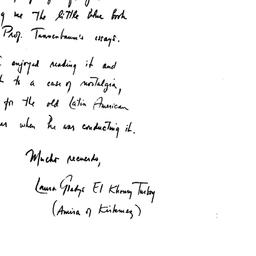 g me the little blue book
Prof. Tannenbaum's essays.
enjoyed reading it and
to a case of nostalgia,
for the old Latin American
when he was conducting it.
Mucho recuerdo,
Laura Gladys El Khoury Turbay
(Amira of